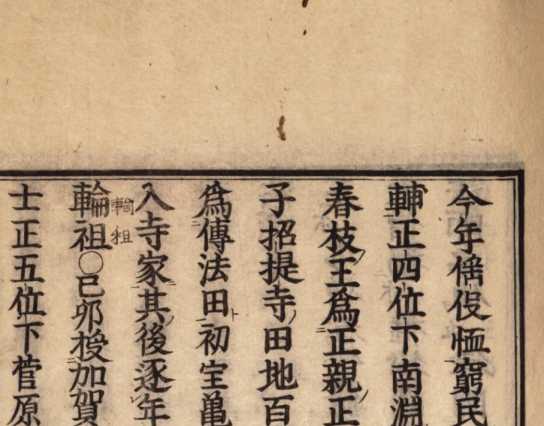 今年徭役恤窮民
輔正四位下南淵
春枝王爲正親正
子招提寺田地百
爲傳法田初宝亀
入寺家其後逐年
輪祖○己卯授加賀
輪租
士正五位下菅原